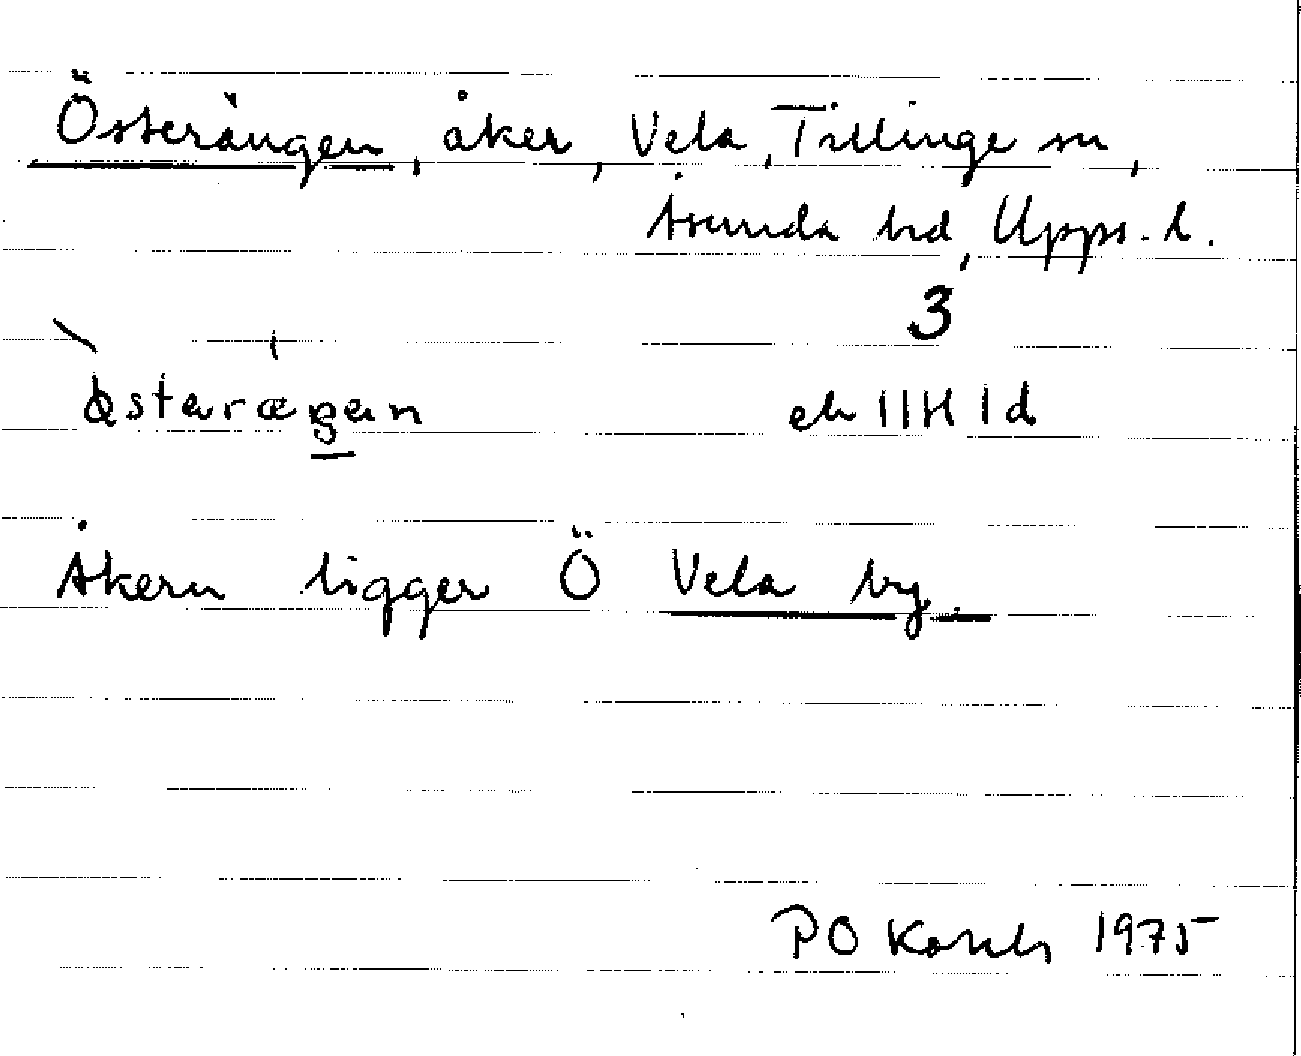 Österängen, åker, Vela, Tillinge sn,
Åsunda hd, Upps. l.
3
østerægen ek 11H 1d
Åkern ligger Ö Vela by.
PO 1975